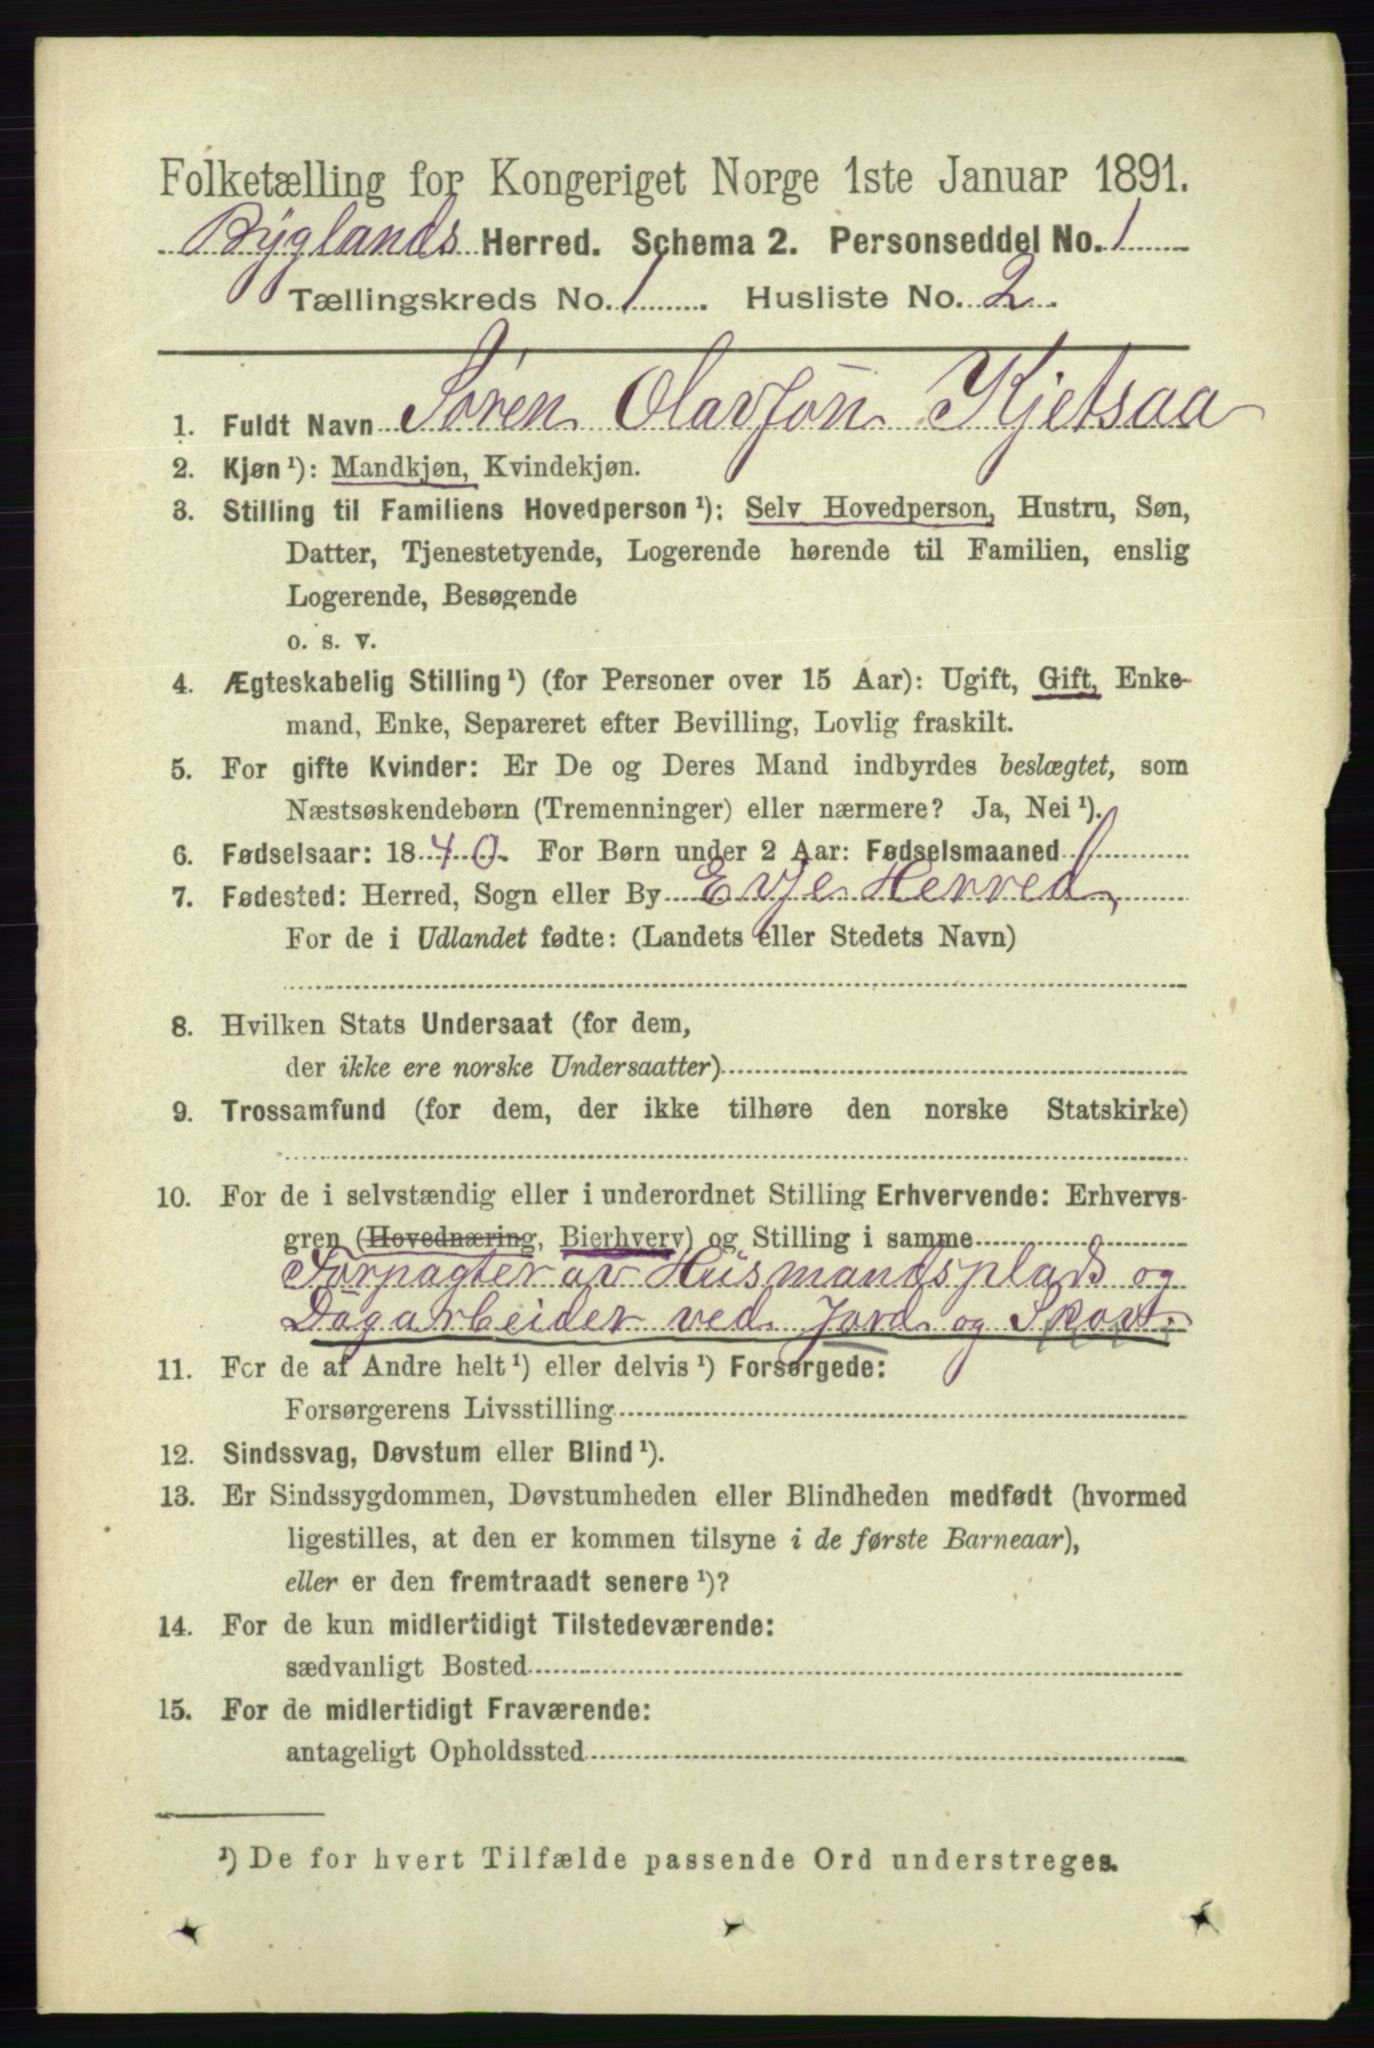 Folketælling for Kongeriget Norge 1ste Januar 1891.
Byglands Herred. Schema 2. Personseddel No. 1
Tællingskreds No. 1 Husliste No. 2
1. Fuldt Navn Søren Olavsøn Kjetsaa
2. Kjøn ¹): Mandkjøn, Kvindekjøn.
3. Stilling til Familiens Hovedperson ¹): Selv Hovedperson, Hustru, Søn,
Datter, Tjenestetyende, Logerende hørende til Familien, enslig
Logerende, Besøgende
o. s. v.
4. Ægteskabelig Stilling ¹) (for Personer over 15 Aar): Ugift, Gift, Enke-
mand, Enke, Separeret efter Bevilling, Lovlig fraskilt.
5. For gifte Kvinder: Er De og Deres Mand indbyrdes beslægtet, som
Næstsøskendebørn (Tremenninger) eller nærmere? Ja, Nei ¹).
6. Fødselsaar: 1840. For Børn under 2 Aar: Fødselsmaaned
7. Fødested: Herred, Sogn eller By Evje Herred
For de i Udlandet fødte: (Landets eller Stedets Navn)
8. Hvilken Stats Undersaat (for dem,
der ikke ere norske Undersaatter)
9. Trossamfund (for dem, der ikke tilhøre den norske Statskirke)
10. For de i selvstændig eller i underordnet Stilling Erhvervende: Erhvervs-
gren (Hovednæring, Bierhverv) og Stilling i samme
Forpagter av Husmandsplads og
Dagarbeider ved Jord og Skov.
11. For de af Andre helt ¹) eller delvis ¹) Forsørgede:
Forsørgerens Livsstilling
12. Sindssvag, Døvstum eller Blind ¹).
13. Er Sindssygdommen, Døvstumheden eller Blindheden medfødt (hvormed
ligestilles, at den er kommen tilsyne i de første Barneaar),
eller er den fremtraadt senere ¹)?
14. For de kun midlertidigt Tilstedeværende:
sædvanligt Bosted
15. For de midlertidigt Fraværende:
antageligt Opholdssted
¹) De for hvert Tilfælde passende Ord understreges.